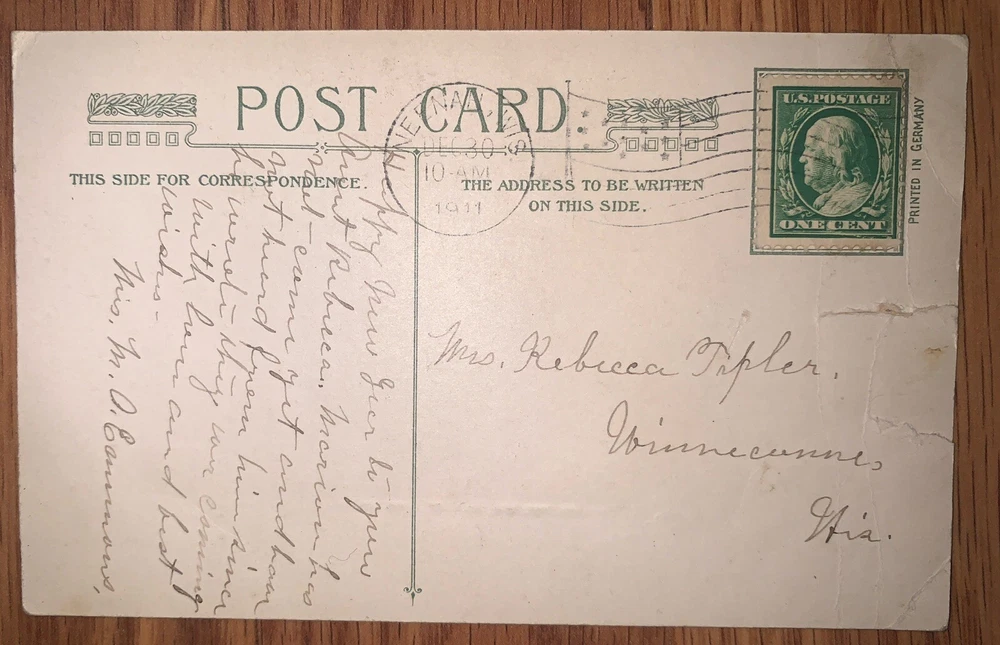 POST CARD
THIS SIDE FOR CORRESPONDENCE.
THE ADDRESS TO BE WRITTEN
ON THIS SIDE.
NEENAH, WIS
DEC 30
10-AM
1911
U.S. POSTAGE
ONE CENT
PRINTED IN GERMANY
Happy New Year to you
Aunt Rebecca. Marion has
not come yet and have
not heard from him since
he wrote they were coming
with love and best
wishes-
Mrs. M. A.
Mrs. Rebecca Tipler.
Winneconne,
Wis.